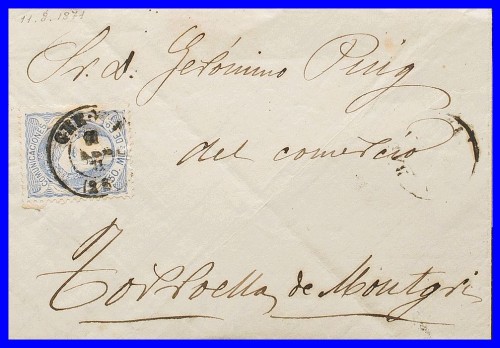 11.8.1871
Sr. d. Gerónimo Puig
del comercio
Torroella de Montgri
COMUNICACIONES
50 MIL